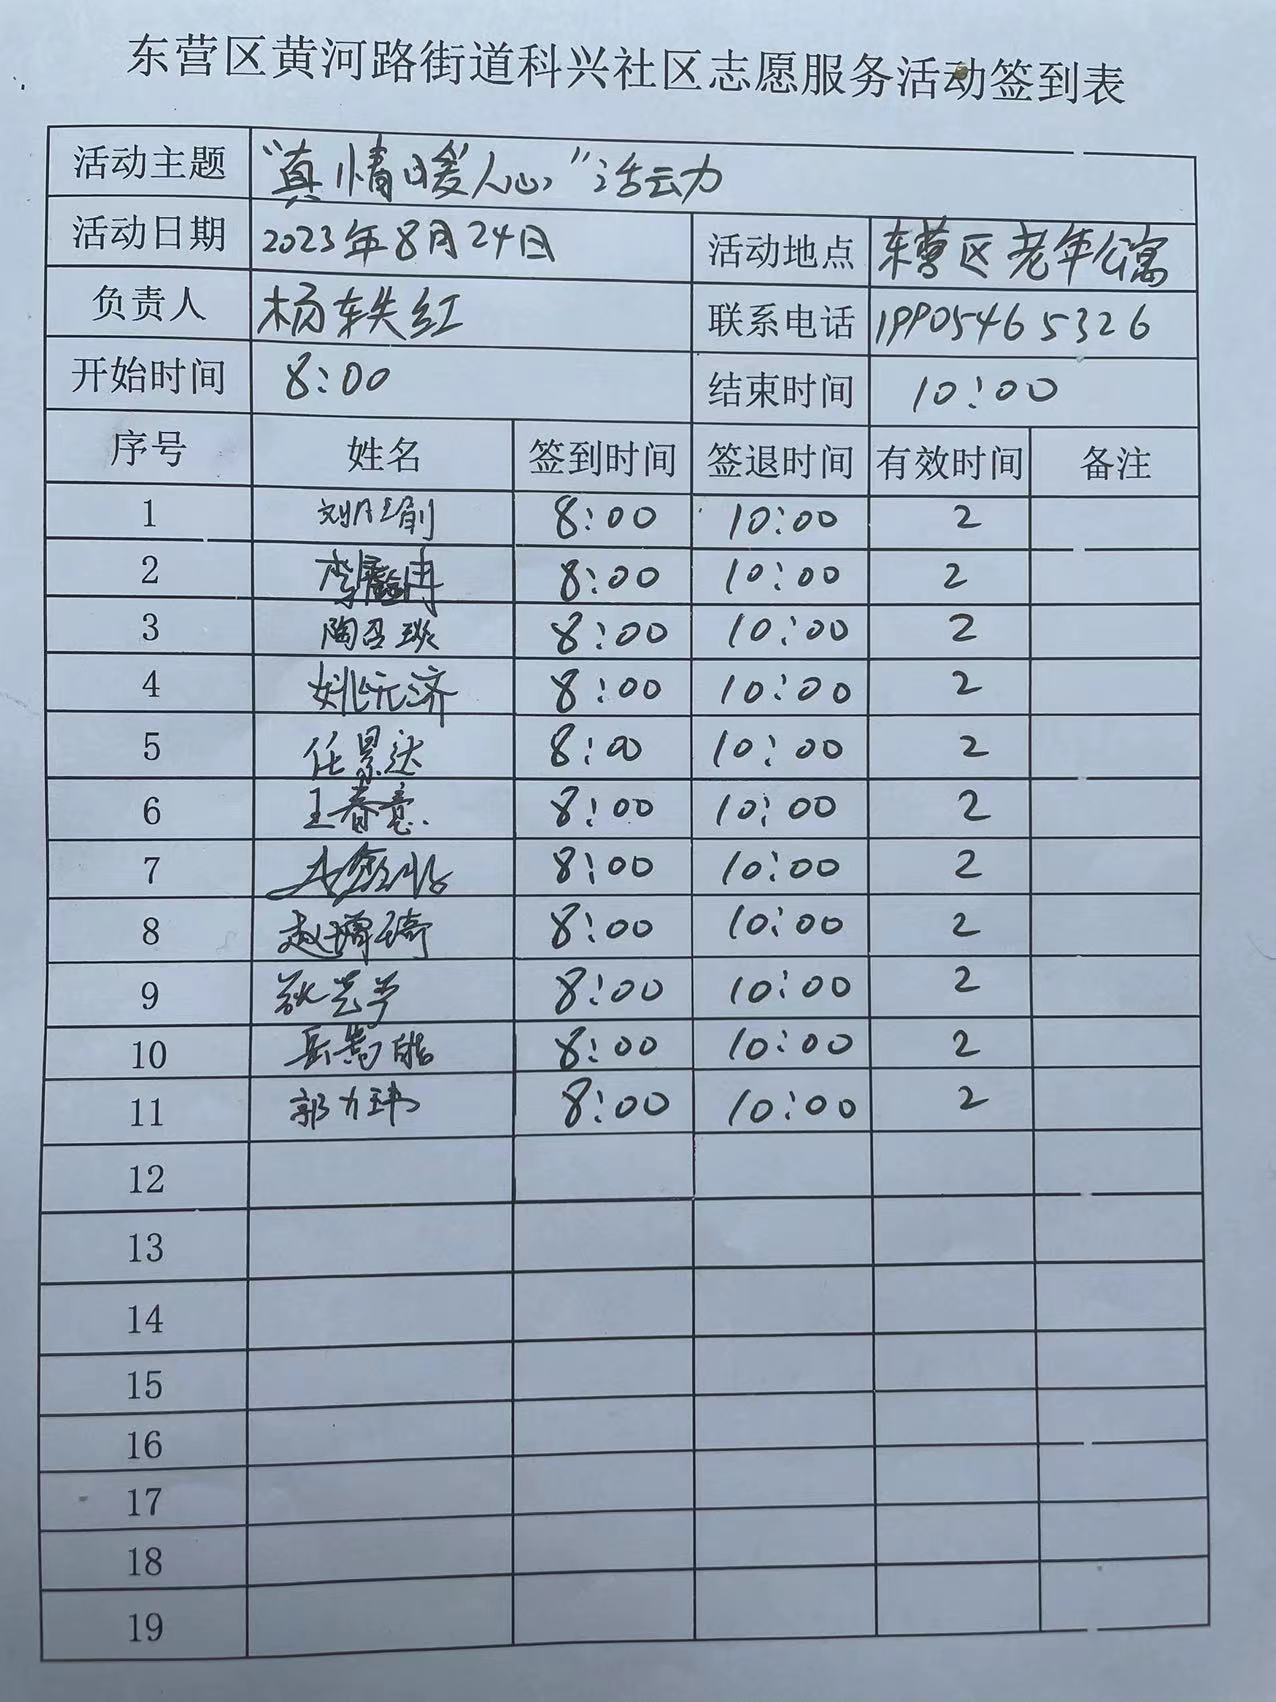 东营区黄河路街道科兴社区志愿服务活动签到表
活动主题 “真情暖人心”活动
活动日期 2023年8月24日 活动地点 东营区老年公寓
负责人 杨轶红 联系电话 19905465326
开始时间 8:00 结束时间 10:00
序号 姓名 签到时间 签退时间 有效时间 备注
1 8:00 10:00 2
2 8:00 10:00 2
3 陶召琰 8:00 10:00 2
4 姚元济 8:00 10:00 2
5 任景达 8:00 10:00 2
6 王春意 8:00 10:00 2
7 8:00 10:00 2
8 8:00 10:00 2
9 8:00 10:00 2
10 8:00 10:00 2
11 郭力玮 8:00 10:00 2
12
13
14
15
16
17
18
19